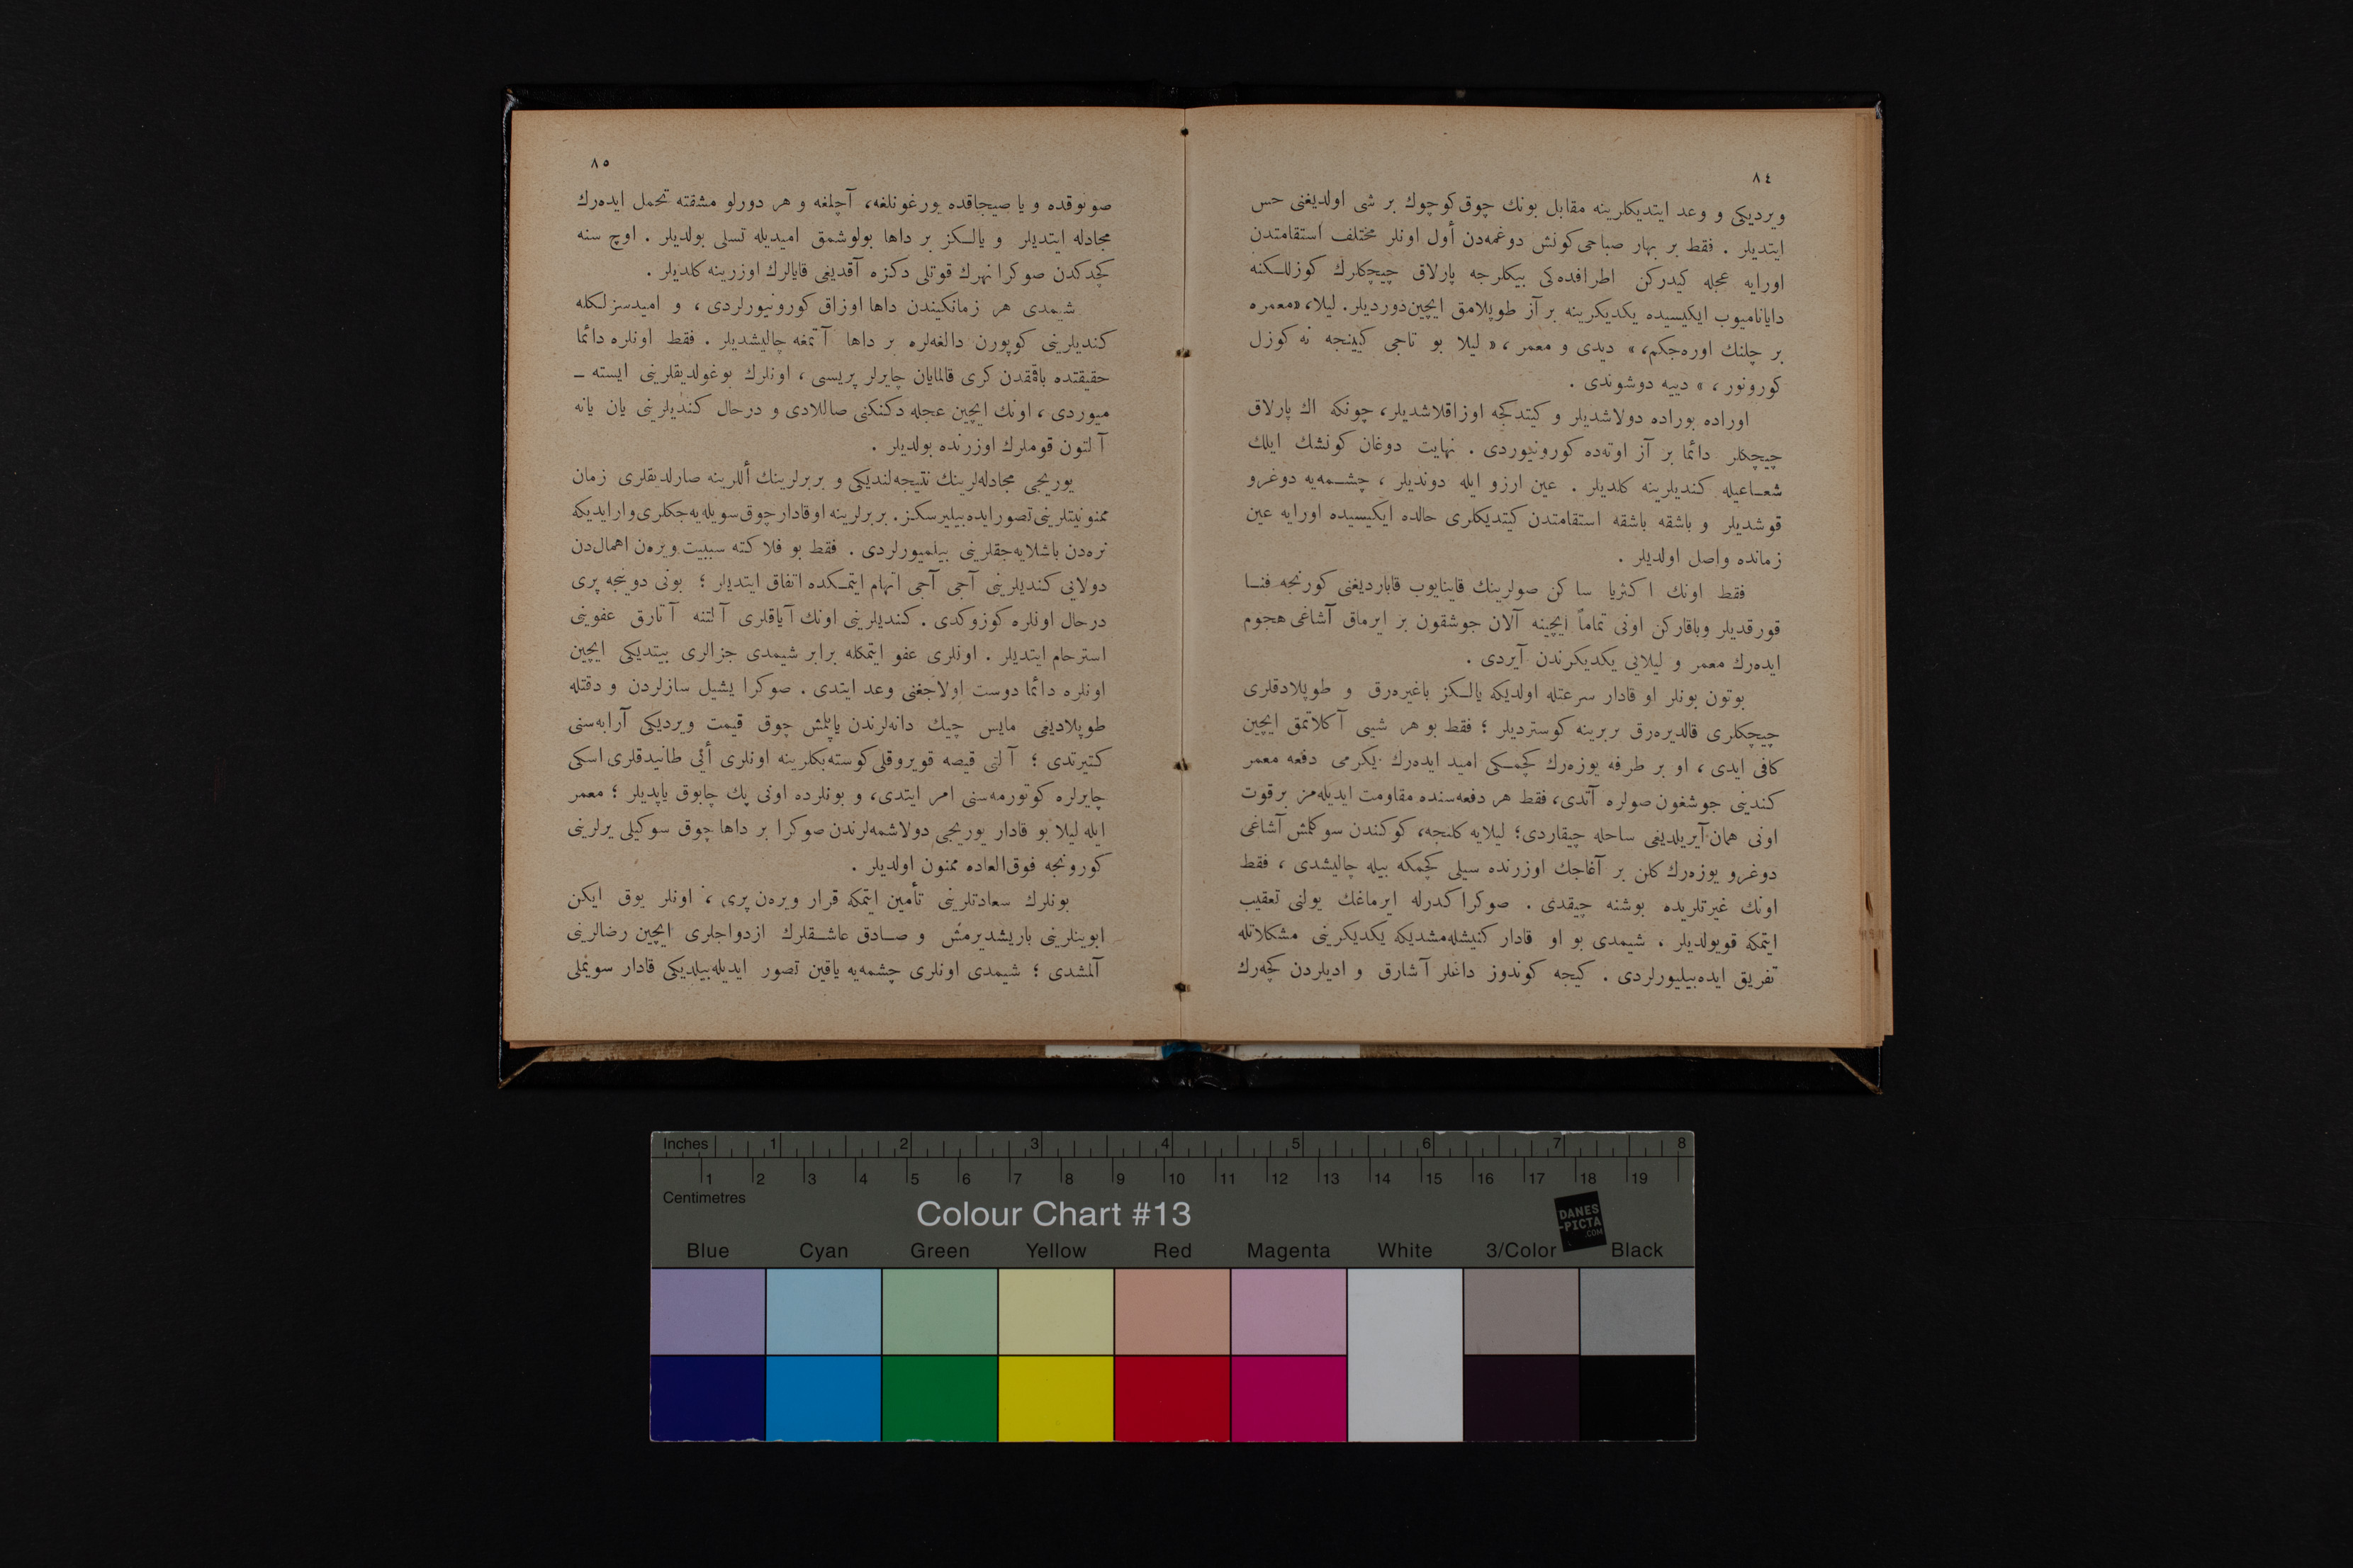 ٨٤
ويرديكى و وعد ايتديكلرينه مقابل بونك چوق كوچوك بر شى اولديغنى حس
ايتديلر . فقط بر بهار صباحى كونش دوغمه‌دن أول اونلر مختلف استقامتدن
اورايه عجله كيدركن اطرافده‌كى بيكلرجه پارلاق چيچكلرك كوزللكنه
داياناميوب ايكيسيده يكديكرينه بر آز طوپلامق ايچين دورديلر. ليلا، «معمره
بر چلنك اوره‌جكم، » ديدى و معمر ، « ليلا بو تاجى كيينجه نه كوزل
كورونور ، » دييه دوشوندى .
اوراده بوراده دولاشديلر و كيتدكجه اوزاقلاشديلر، چونكه اك پارلاق
چيچكلر دائما بر آز اوته‌ده كورونيوردى . نهايت دوغان كونشك ايلك
شعاعيله كنديلرينه كلديلر . عين ارزو ايله دونديلر ، چشمه‌يه دوغرو
قوشديلر و باشقه باشقه استقامتدن كيتديكلرى حالده ايكيسيده اورايه عين
زمانده واصل اولديلر .
فقط اونك اكثريا ساكن صولرينك قاينايوب قابارديغنى كورنجه فنا
قورقديلر وباقاركن اونى تماماً ايچينه آلان جوشقون بر ايرماق آشاغى هجوم
ايده‌رك معمر و ليلايى يكديكرندن آيردى .
بوتون بونلر او قادار سرعتله اولديكه يالكز باغيره‌رق و طوپلادقلرى
چيچكلرى قالديره‌رق بربرينه كوسترديلر ؛ فقط بو هر شيى آكلاتمق ايچين
كافى ايدى ، او بر طرفه يوزه‌رك كچمكى اميد ايده‌رك يكرمى دفعه معمر
كندينى جوشغون صولره آتدى، فقط هر دفعه‌سنده مقاومت ايديله‌مز بر قوت
اونى همان آيريلديغى ساحله چيقاردى؛ ليلايه كلنجه، كوكندن سوكلمش آشاغى
دوغرو يوزه‌رك كلن بر آغاجك اوزرنده سيلى كچمكه بيله چاليشدى ، فقط
اونك غيرتلريده بوشنه چيقدى . صوكرا كدرله ايرماغك يولنى تعقيب
ايتمكه قويولديلر . شيمدى بو او قادار كنيشله‌مشديكه يكديكرينى مشكلاتله
تفريق ايده‌بيليورلردى . كيجه كوندوز داغلر آشارق و اديلردن كچه‌رك
٨٥
صوٮوقده و يا صيجاقده يورغونلغه، آچلغه و هر دورلو مشقته تحمل ايده‌رك
مجادله ايتديلر و يالكز بر داها بولوشمق اميديله تسلى بولديلر . اوچ سنه
كچدكدن صوكرا نهرك قوتلى دكزه آقديغى قايالرك اوزرينه كلديلر .
شيمدى هر زمانكيندن داها اوزاق كورونيورلردى ، و اميدسزلكله
كنديلرينى كوپورن دالغه‌لره بر داها آتمغه چاليشديلر . فقط اونلره دائما
حقيقتده باقمقدن كرى قالمايان چايرلر پريسى ، اونلرك بوغولديقلرينى ايسته ـ
ميوردى ، اونك ايچين عجله دكنكنى صاللادى و درحال كنديلرينى يان يانه
آلتون قوملرك اوزرنده بولديلر .
يوريجى مجادله‌لرينك نتيجه‌لنديكى و بربرلرينك أللرينه صارلدقلرى زمان
ممنونيتلرينى تصور ايده‌بيليرسكز. بربرلرينه اوقادار چوق سويله‌يه‌جكلرى وارايديكه
نره‌دن باشلايه‌جقلرينى بيلميورلردى . فقط بو فلاكته سببيت ويره‌ن اهمال‌دن
دولايى كنديلرينى آجى آجى اتهام ايتمكده اتفاق ايتديلر ؛ بونى دوينجه پرى
درحال اونلره كوزوكدى . كنديلرينى اونك آياقلرى آلتنه آتارق عفوينى
استرحام ايتديلر . اونلرى عفو ايتمكله برابر شيمدى جزالرى بيتديكى ايچين
اونلره دائما دوست اولاجغنى وعد ايتدى . صوكرا يشيل سازلردن و دقتله
طوپلاديغى مايس چيك دانه‌لرندن ياپلمش چوق قيمت ويرديكى آرابه‌سنى
كتيرتدى ؛ آلتى قيصه قويروقلى كوسته‌بكلرينه اونلرى أيى طانيدقلرى اسكى
چايرلره كوتورمه‌سنى امر ايتدى، و بونلرده اونى پك چابوق ياپديلر ؛ معمر
ايله ليلا بو قادار يوريجى دولاشمه‌لرندن صوكرا بر داها چوق سوكيلى يرلرينى
كورونجه فوق‌العاده ممنون اولديلر .
بونلرك سعادتلرينى تأمين ايتمكه قرار ويره‌ن پرى ، اونلر يوق ايكن
ابوينلرينى باريشديرمش و صادق عاشقلرك ازدواجلرى ايچين رضالرينى
آلمشدى ؛ شيمدى اونلرى چشمه‌يه ياقين تصور ايديله‌بيلديكى قادار سويملى
Inches 1 2 3 4 5 6 7 8
1 2 3 4 5 6 7 8 9 10 11 12 13 14 15 16 17 18 19
Centimetres
Colour Chart #13
DANES
-PICTA
.COM
Blue Cyan Green Yellow Red Magenta White 3/Color Black